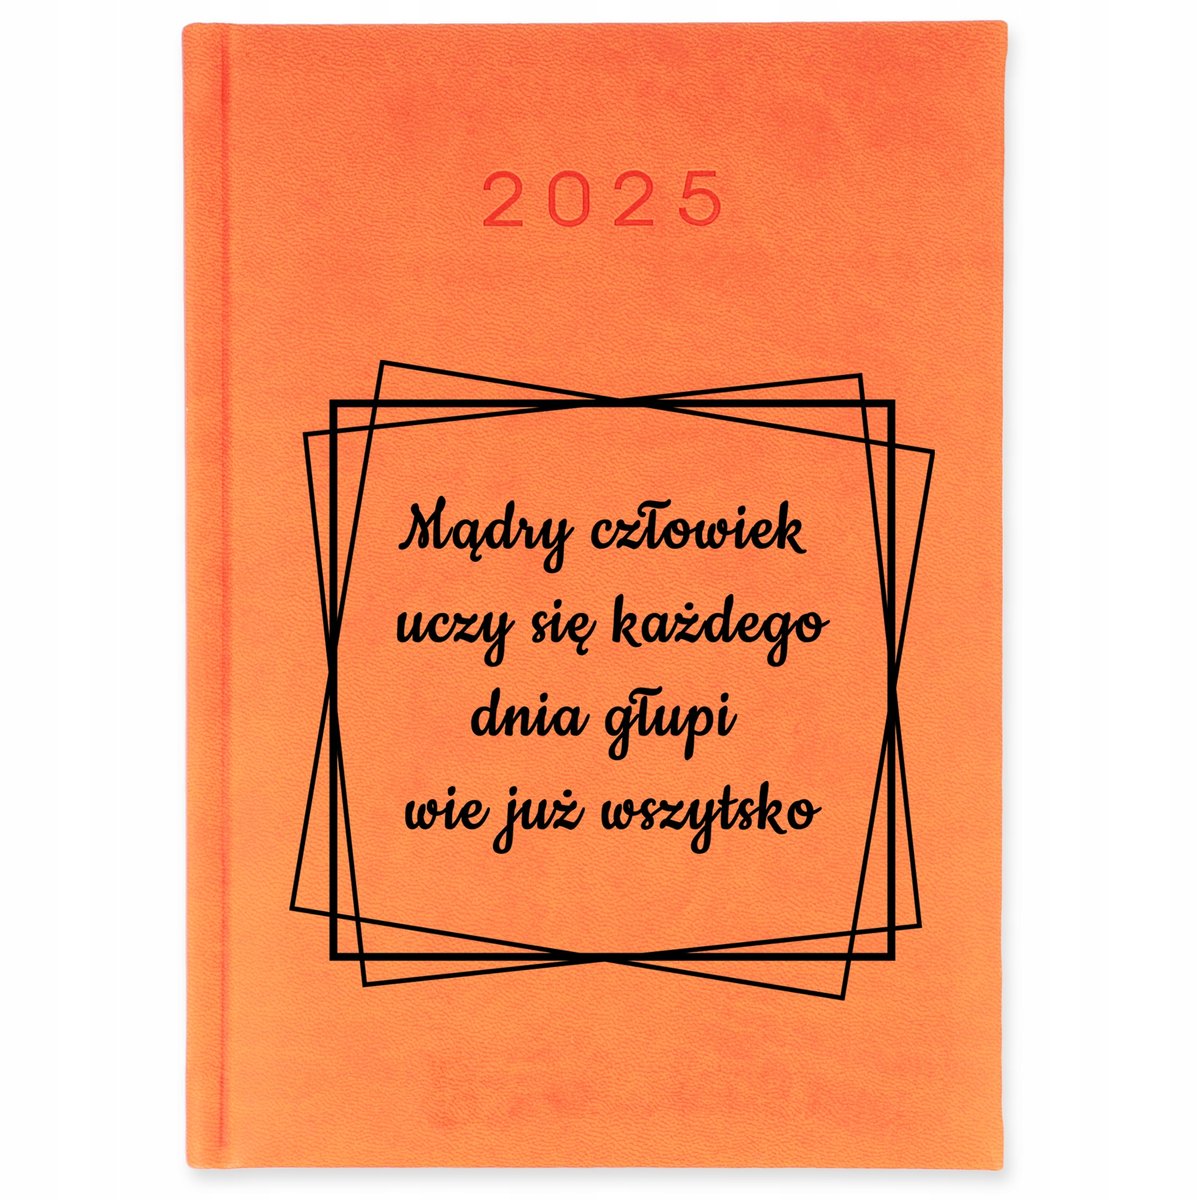 2025
Mądry człowiek
uczy się każdego
dnia głupi
wie już wszytsko